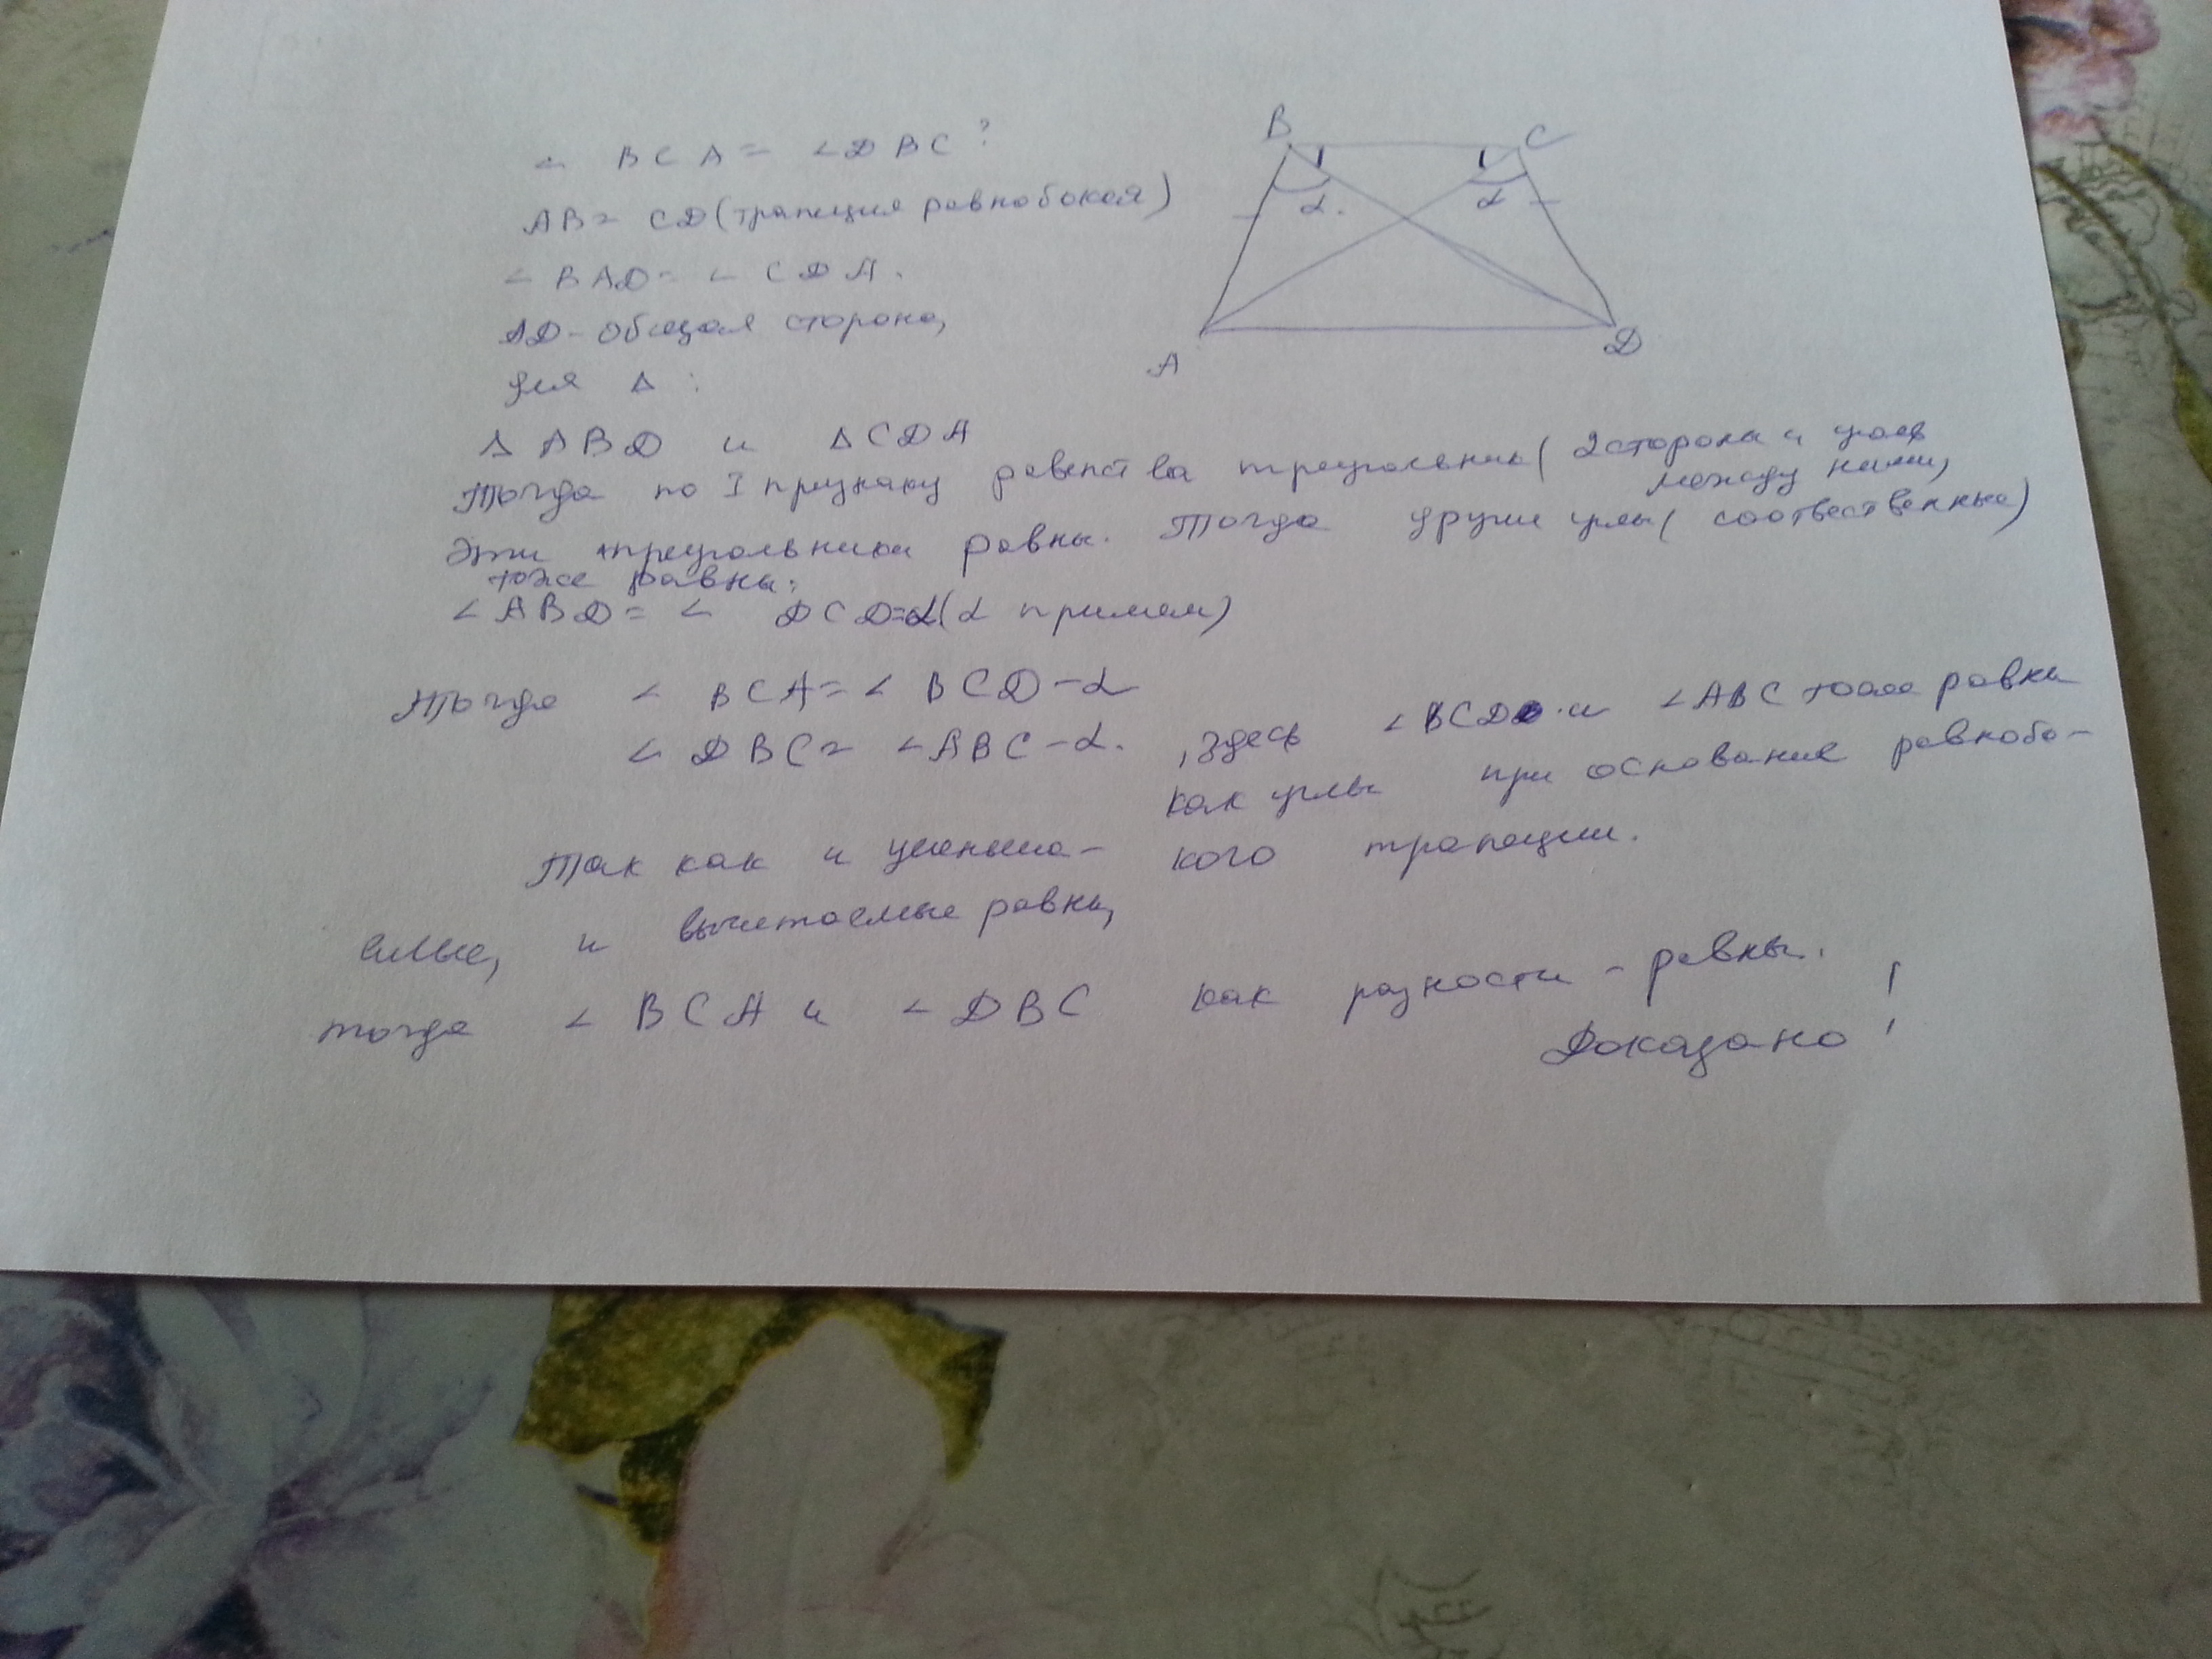 ∠ BCA = ∠DBC ?
AB = CD (трапеция равнобокая)
∠ BAD = ∠ CDA.
AD - общая сторона,
для Δ :
Δ ABD и Δ CDA
Тогда по I признаку равенства треугольник ( 2 стороны и угол
между ними,
эти треугольники равны. Тогда другие углы ( соотвественные)
тоже равны:
∠ ABD = ∠ DCD = α (α примем)
Тогда ∠ BCA = ∠ BCD - α
∠ DBC = ∠ABC - α. , здесь ∠BCD и ∠ABC тоже равны
как углы при основания равнобо-
кого трапеции.
Так как и уменьша-
емые, и вычитаемые равны,
тогда ∠ BCA и ∠ DBC как разности - равны.
Доказано !
B
C
α.
α
A
D